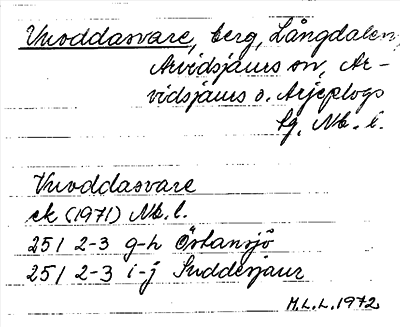 Vuoddasvare, berg, Långdalen,
Arvidsjaurs sn, Ar-
vidsjaurs o. Arjeplogs
lg, Nb. l.
Vuoddasvare
ek (1971) Nb. l.
25I 2-3 g-h Östansjö
25I 2-3 i-j Suddesjaur
H.L.L. 1972